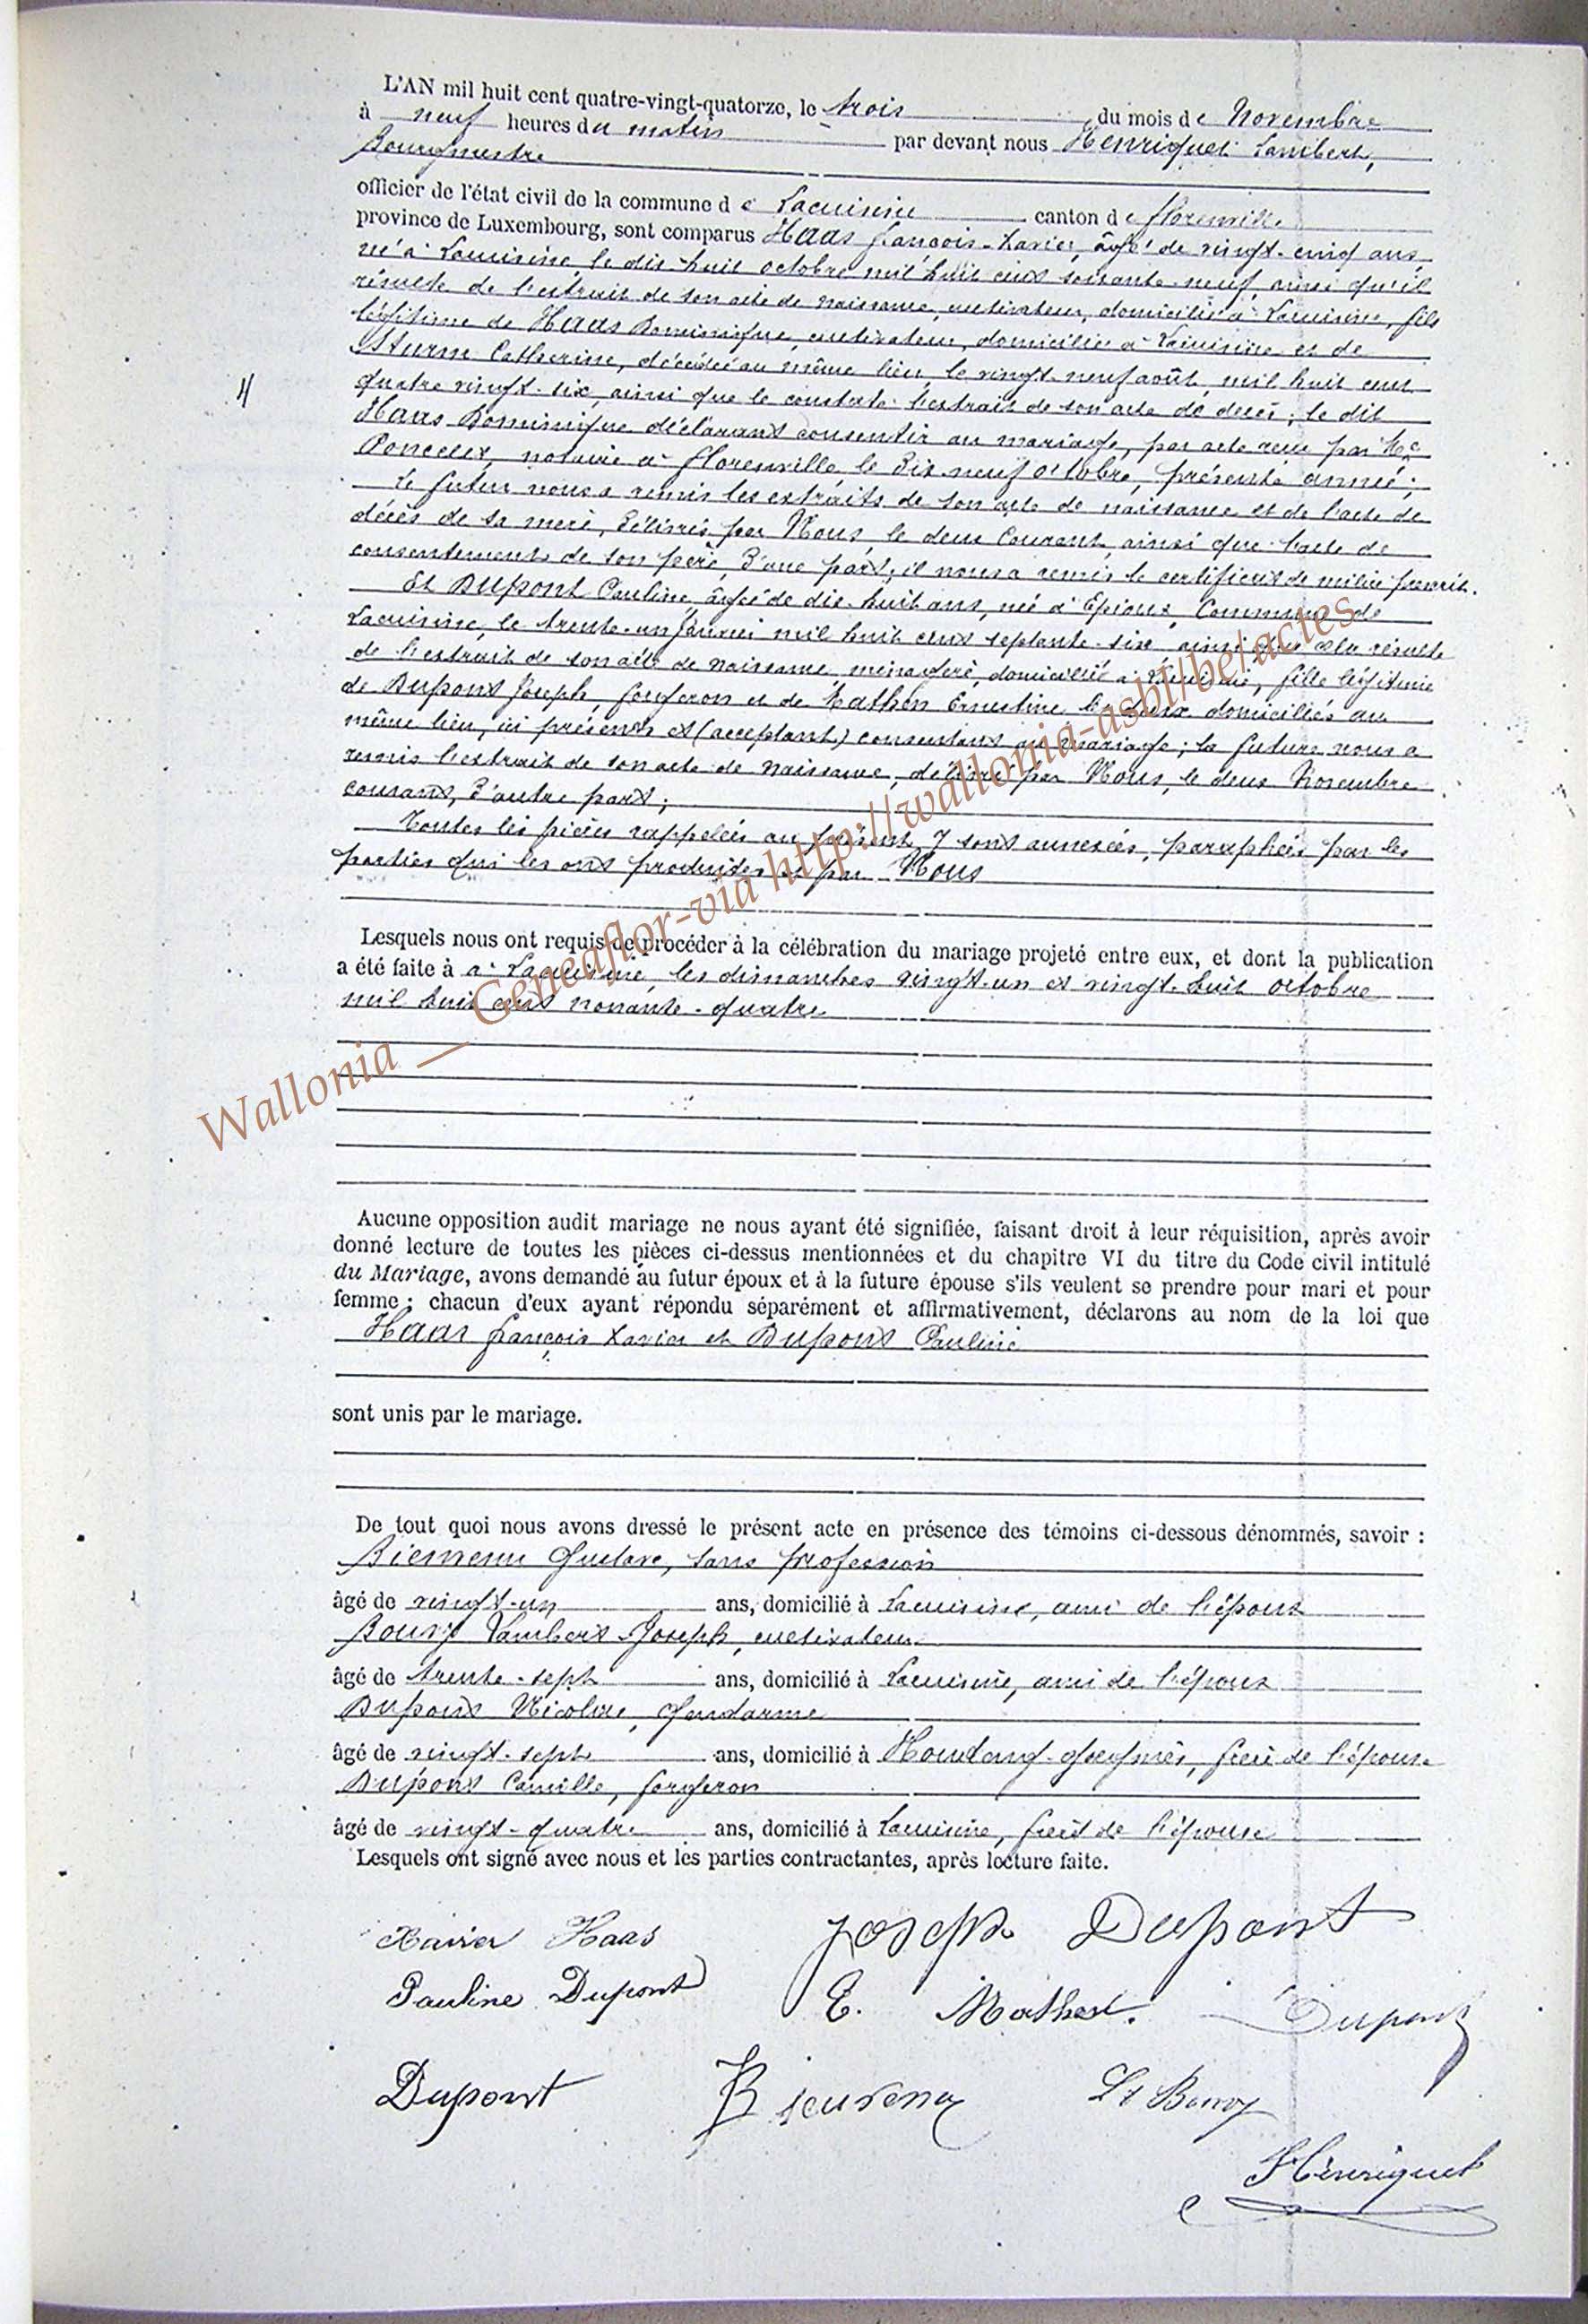 L'AN mil huit cent quatre-vingt-quatorze, le trois du mois de Novembre
à neuf heures du matin par devant nous Henriquet Lambert,
Bourgmestre
officier de l'état civil de la commune de Lacuisine canton de florenville
province de Luxembourg, sont comparus Haas françois-Xavier, âgé de vingt-cinq ans,
né à Lacuisine, le dix-huit octobre mil huit cent soixante-neuf, ainsi qu'il
résulte de l'extrait de son acte de naissance, cultivateur, domicilié à Lacuisine, fils
légitime de Haas Dominique, cultivateur, domicilié à Lacuisine et de
Sturm Catherine, décédée au même lieu, le vingt-neuf août mil huit cent
4
quatre vingt-six, ainsi que le constate l'extrait de son acte de décès; le dit
Haas Dominique déclarant consentir au mariage, par acte reçu par Me
Poncelet, notaire à florenville, le dix neuf octobre, présente année;
Le futur nous a remis les extraits de son acte de naissance et de l'acte de
décès de sa mère, délivrés par Nous, le deux Courant, ainsi que l'acte de
consentement de son père, d'une part; il nous a remis le certificat de milice prescrit.
Et Dupont Pauline, âgée de dix-huit ans, née à Epioux, Commune de
Lacuisine, le trente-un janvier mil huit cent septante-six ainsi que cela résulte
de l'extrait de son acte de naissance, ménagère, domiciliée à Lacuisine, fille légitime
de Dupont Joseph, forgeron et de Mathen Ernestine les deux domiciliés au
même lieu, ici présents et (acceptant) consentant au mariage; la future nous a
remis l'extrait de son acte de naissance, délivré par Nous, le deux Novembre
courant, d'autre part;
Toutes les pièces rappelées au présent, y sont annexées, paraphées par les
parties qui les ont produites et par Nous
Lesquels nous ont requis de procéder à la célébration du mariage projeté entre eux, et dont la publication
a été faite à à Lacuisine, les dimanches vingt-un et vingt-huit octobre
mil huit cent nonante-quatre
Wallonia _ Geneaflor-via http://wallonia-asbl/be/actes
Aucune opposition audit mariage ne nous ayant été signifiée, faisant droit à leur réquisition, après avoir
donné lecture de toutes les pièces ci-dessus mentionnées et du chapitre VI du titre du Code civil intitulé
du Mariage, avons demandé au futur époux et à la future épouse s'ils veulent se prendre pour mari et pour
femme; chacun d'eux ayant répondu séparément et affirmativement, déclarons au nom de la loi que
Haas françois Xavier et Dupont Pauline
sont unis par le mariage.
De tout quoi nous avons dressé le présent acte en présence des témoins ci-dessous dénommés, savoir :
Bienvenu Gustave, sans profession
âgé de vingt-un ans, domicilié à Lacuisine, ami de l'époux
Boury Lambert Joseph, cultivateur
âgé de trente-sept ans, domicilié à Lacuisine, ami de l'époux
Dupont Nicolas, Gendarme
âgé de vingt-sept ans, domicilié à Houdeng-Goegnies, frère de l'épouse
Dupont Camille, forgeron
âgé de vingt-quatre ans, domicilié à Lacuisine, frère de l'épouse
Lesquels ont signé avec nous et les parties contractantes, après lecture faite.
Xavier Haas Joseph Dupont
Pauline Dupont E. Mathen. Dupont
Dupont Bienvenu Lt Boury
Henriquet